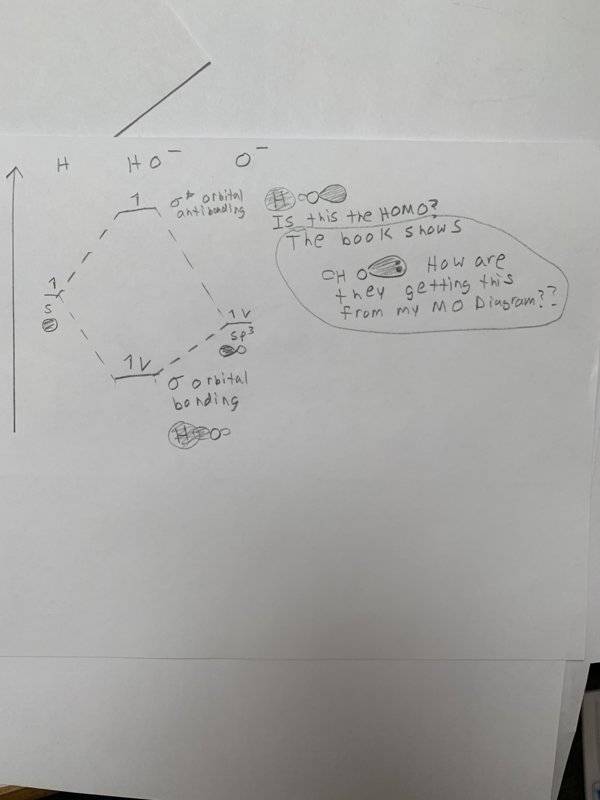 H HO⁻ O⁻
1 σ* orbital
antibonding
H
Is this the HOMO?
The book shows
OH How are
they getting this
from my MO Diagram??
1
s
1V
sp³
1V
σ orbital
bonding
H O